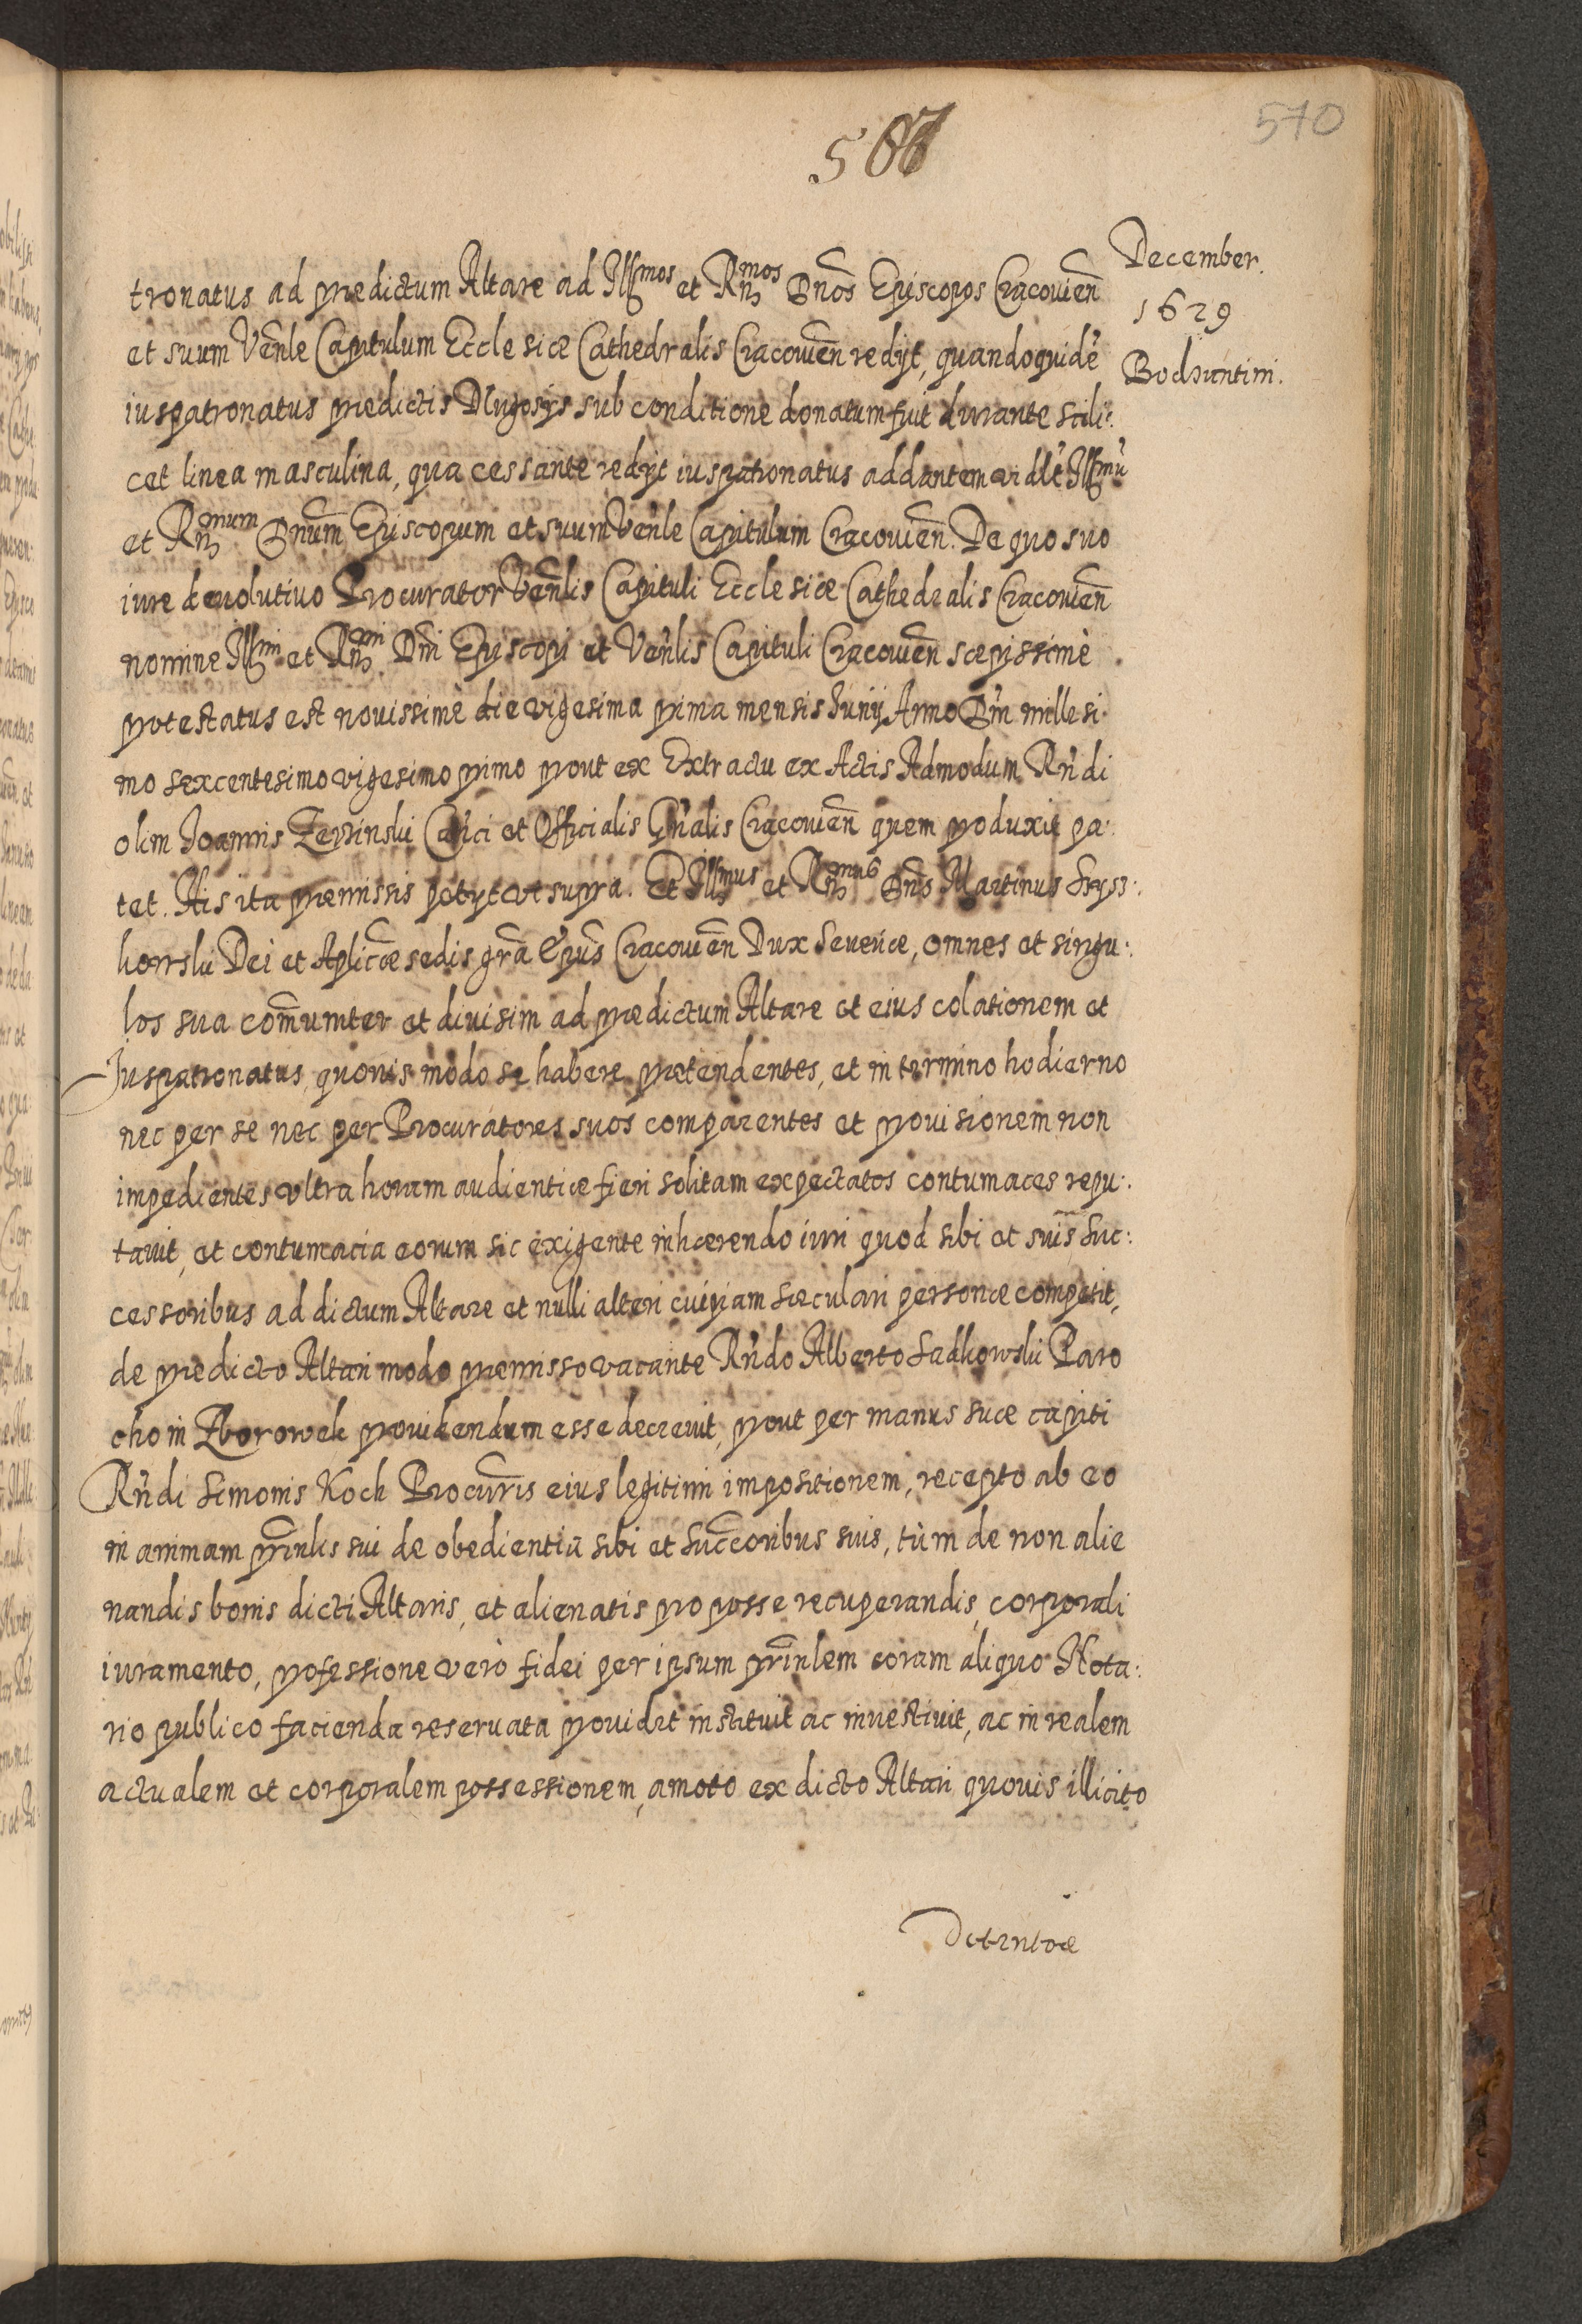 567
570
December.
1629
Bodzantini.
tronatus ad prædictum Altare ad Illmos et Rndmos Dnos Episcopos Cracovien
et suum Venle Capitulum Ecclesiæ Cathedralis Cracovien redyt, quandoquidē
iuspatronatus prædictis Dlugosijs sub conditione donatum fuit durante scili:
cet linea masculina, qua cessante redyt iuspatronatus ad dantem videlt Illmū
et Rndmum Dnum Episcopum et suum Venle Capitulum Cracovien. De quo suo
iure devolutivo Procurator Venlis Capituli Ecclesiæ Cathedralis Cracovien
nomine Illmi et Rndmi Dni Episcopi et Venlis Capituli Cracovien sæpissimè
protestatus est novissimè die vigesima prima mensis Junij Anno Dni millesi:
mo sexcentesimo vigesimo primo prout ex Extractu ex Actis Admodum Rndi
olim Joannis Zerzinski Canci et Officialis Gnalis Cracovien quem produxit pa:
tet. His ita præmissis petyt ut supra. Et Illmus et Rndmus Dns Martinus Szysz:
kowski Dei et Aplicæ sedis gra Epus Cracovien Dux Severiæ, omnes et singu:
los sua comuniter et divisim ad prædictum Altare et eius colationem et
Juspatronatus, quovis modo se habere prætendentes, et in termino hodierno
nec per se nec per Procuratores suos comparentes et provisionem non
impedientes ultra horam audientiæ fieri solitam expectatos contumaces repu:
tavit, et contumacia eorum sic exigente inhærendo iuri quod sibi et suis Suc:
cessoribus ad dictum Altare et nulli alteri cuipiam sæculari personæ competit,
de prædicto Altari modo præmisso vacante Rndo Alberto Sadkowski Paro
cho in Zborowek providendum esse decrevit, prout per manus suæ capiti
Rndi Simonis Koch Procuris eius legitimi impositionem, recepto ab eo
in animam prinlis sui de obedientia sibi et Succoribus suis, tùm de non alie
nandis bonis dicti Altaris, et alienatis pro posse recuperandis, corporali
iuramento, professione verò fidei per ipsum prinlem coram aliquo Nota:
rio publico facienda reservata providit instituit ac investivit, ac in realem
actualem et corporalem possessionem, amoto ex dicto Altari quovis illicito
Detentore